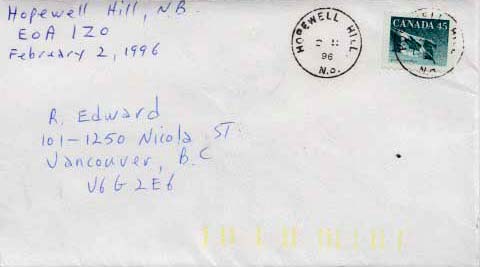 Hopewell Hill, N.B.
E0A 1Z0
February 2, 1996
HOPEWELL HILL
96
N.B.
CANADA 45
R. Edward
101-1250 Nicola ST.
Vancouver, B.C
V6G 2E6